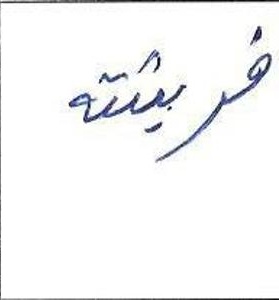 فریفته